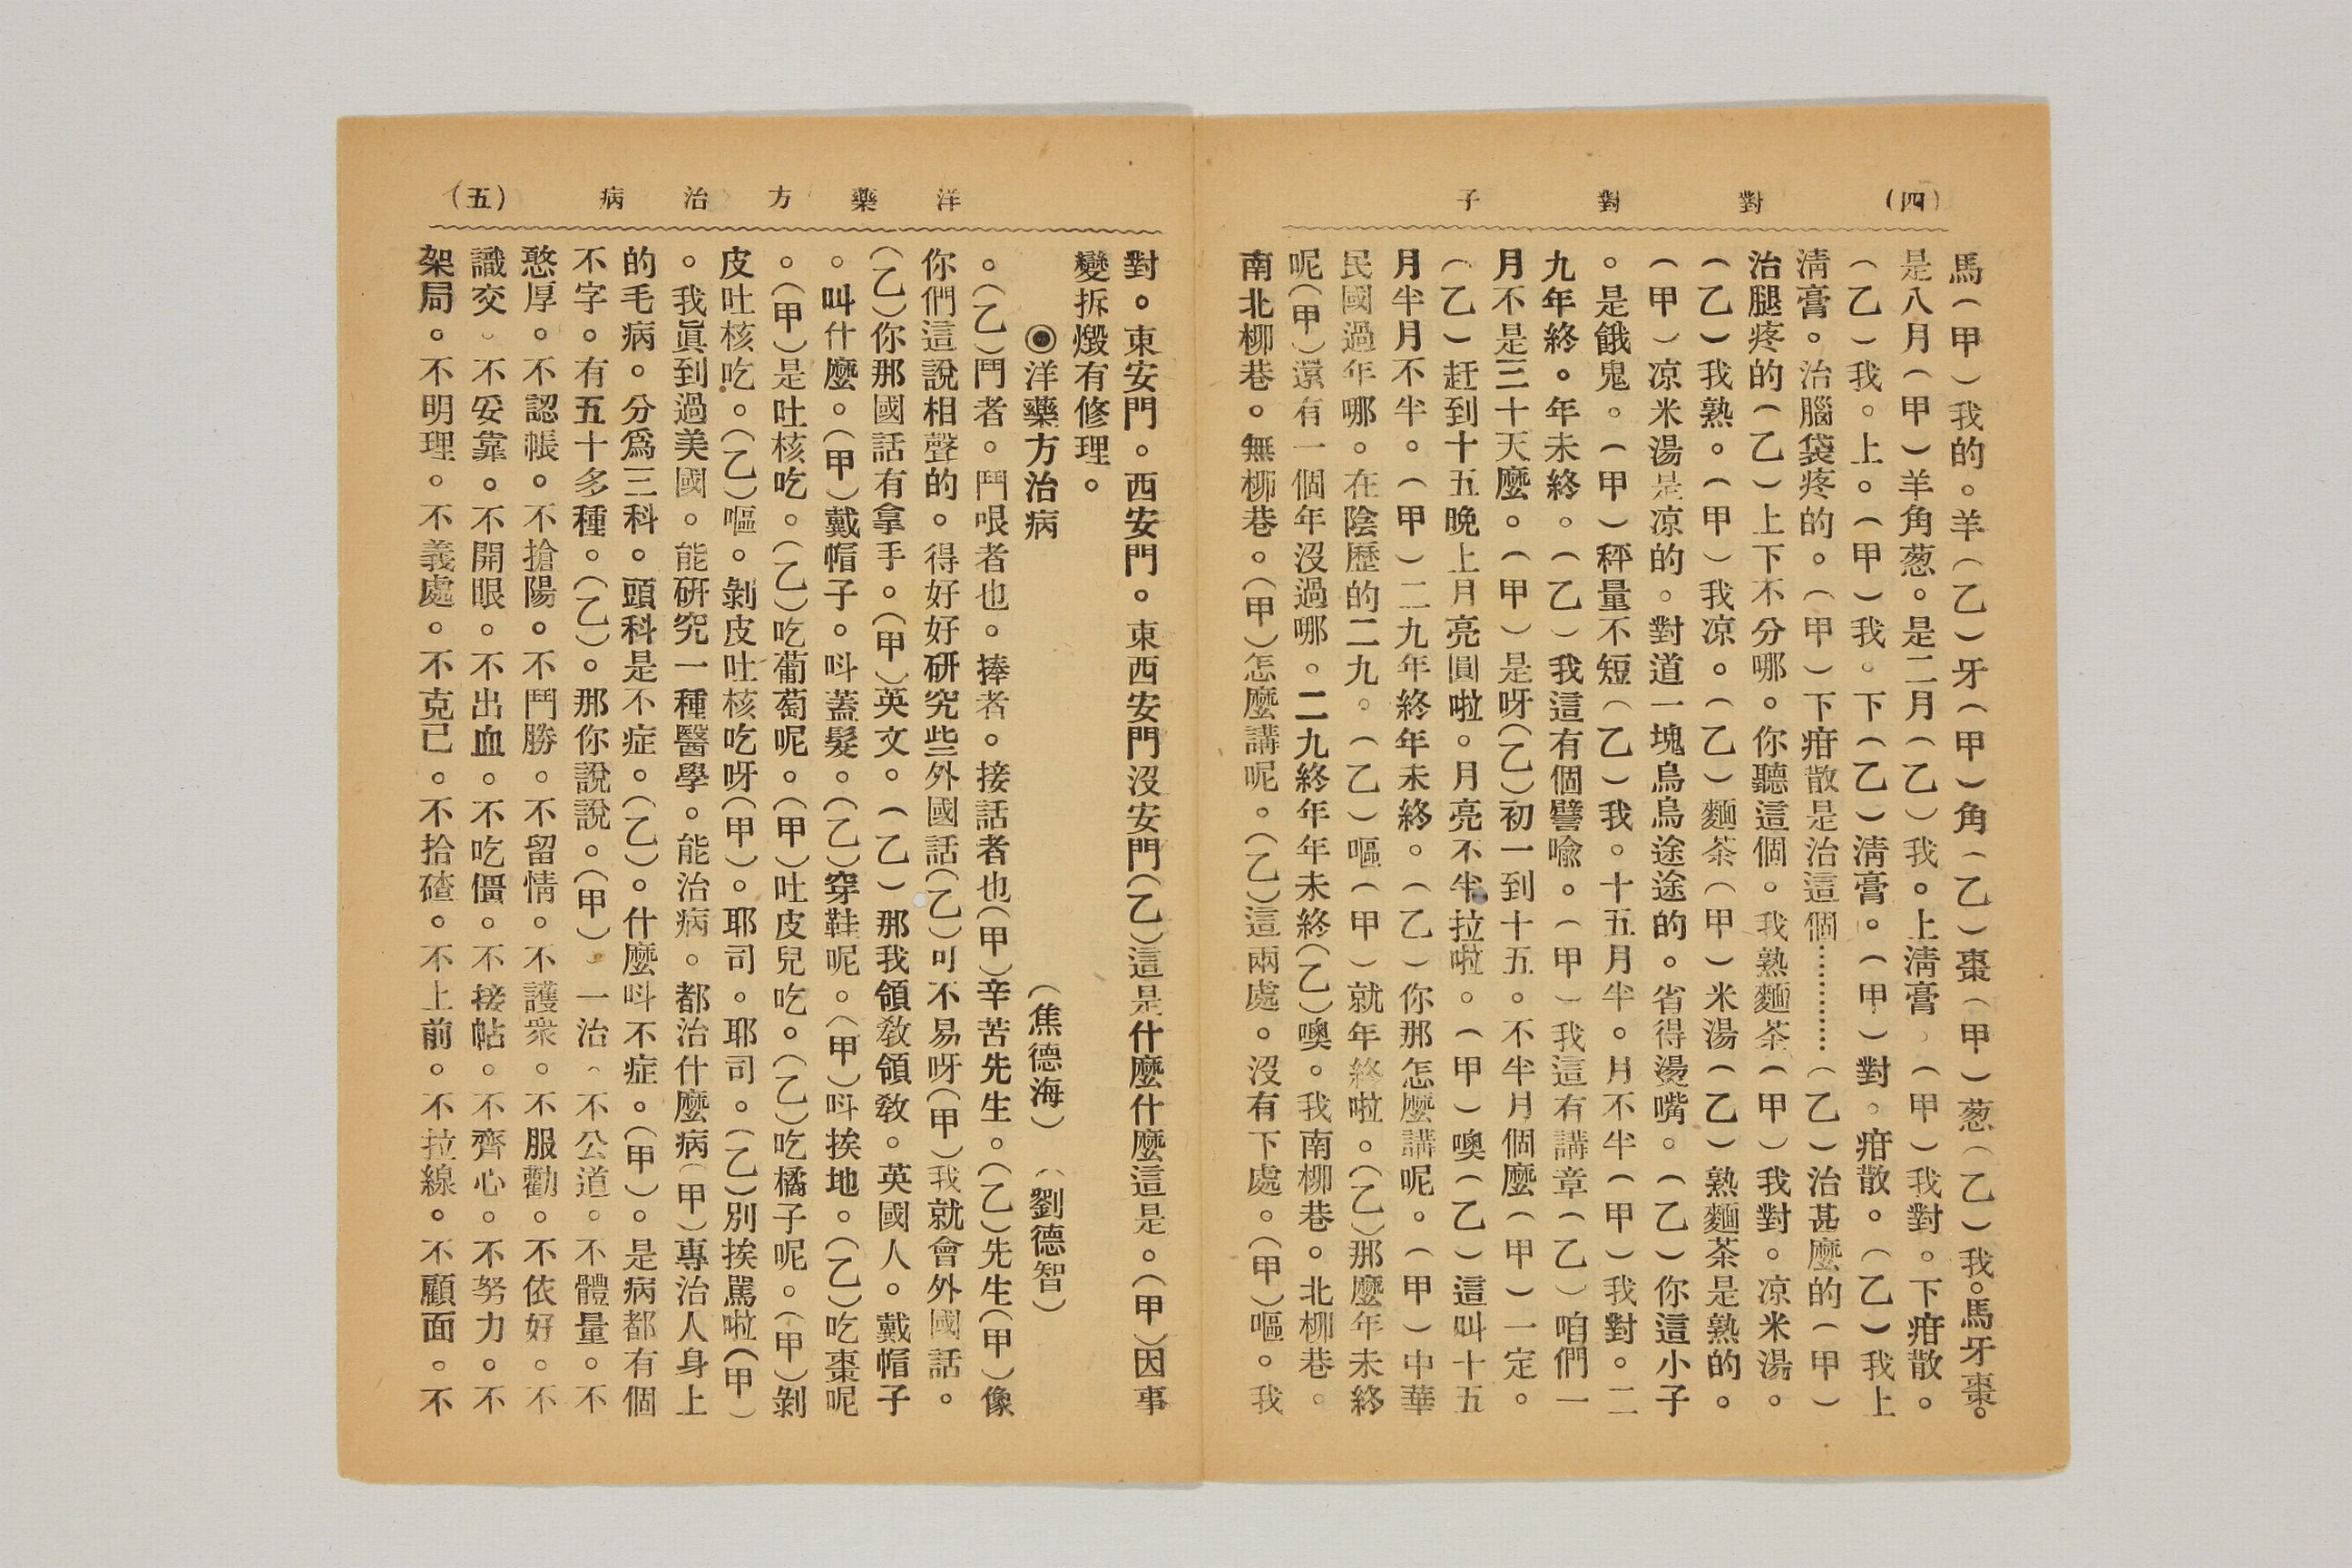 (四)　對對子
馬(甲)我的。羊(乙)牙(甲)角(乙)棗(甲)葱(乙)我。馬牙棗。
是八月(甲)羊角葱。是二月(乙)我。上淸膏。(甲)我對。下疳散。
(乙)我。上。(甲)我。下(乙)淸膏。(甲)對。疳散。(乙)我上
淸膏。治腦袋疼的。(甲)下疳散是治這個…………(乙)治甚麼的(甲)
治腿疼的(乙)上下不分哪。你聽這個。我熟麵茶(甲)我對。凉米湯。
(乙)我熟。(甲)我凉。(乙)麵茶(甲)米湯(乙)熟麵茶是熟的。
(甲)凉米湯是凉的。對道一塊烏烏途途的。省得燙嘴。(乙)你這小子
。是餓鬼。(甲)秤量不短(乙)我。十五月半。月不半(甲)我對。二
九年終。年未終。(乙)我這有個譬喩。(甲)我這有講章(乙)咱們一
月不是三十天麼。(甲)是呀(乙)初一到十五。不半月個麼(甲)一定。
(乙)赶到十五晚上月亮圓啦。月亮不半拉啦。(甲)噢(乙)這叫十五
月半月不半。(甲)二九年終年未終。(乙)你那怎麼講呢。(甲)中華
民國過年哪。在陰歷的二九。(乙)嘔(甲)就年終啦。(乙)那麼年未終
呢(甲)還有一個年沒過哪。二九終年年未終(乙)噢。我南柳巷。北柳巷。
南北柳巷。無柳巷。(甲)怎麼講呢。(乙)這兩處。沒有下處。(甲)嘔。我
洋藥方治病　(五)
對。東安門。西安門。東西安門沒安門(乙)這是什麼什麼這是。(甲)因事
變拆燬有修理。
◉洋藥方治病　(焦德海)(劉德智)
。(乙)鬥者。鬥哏者也。捧者。接話者也(甲)辛苦先生。(乙)先生(甲)像
你們這說相聲的。得好好研究些外國話(乙)可不易呀(甲)我就會外國話。
(乙)你那國話有拿手。(甲)英文。(乙)那我領敎領敎。英國人。戴帽子
。叫什麼。(甲)戴帽子。呌蓋髮。(乙)穿鞋呢。(甲)呌挨地。(乙)吃棗呢
。(甲)是吐核吃。(乙)吃葡萄呢。(甲)吐皮兒吃。(乙)吃橘子呢。(甲)剝
皮吐核吃。(乙)嘔。剝皮吐核吃呀(甲)。耶司。耶司。(乙)別挨駡啦(甲)
。我眞到過美國。能研究一種醫學。能治病。都治什麼病(甲)專治人身上
的毛病。分爲三科。頭科是不症。(乙)。什麼呌不症。(甲)。是病都有個
不字。有五十多種。(乙)。那你說說。(甲)。一治。不公道。不體量。不
憨厚。不認帳。不搶陽。不鬥勝。不留情。不護衆。不服勸。不依好。不
識交。不妥靠。不開眼。不出血。不吃僵。不接帖。不齊心。不努力。不
架局。不明理。不義處。不克己。不拾碴。不上前。不拉線。不顧面。不